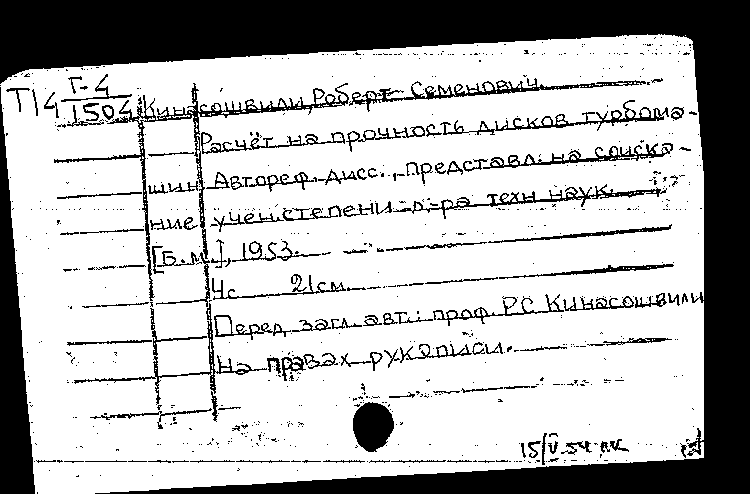 Т14 Г-4
1504
Кинасошвили, Роберт Семенович.
Расчёт на прочность дисков турбома-
шин Автореф. дисс., представл. на соиска-
ние учен. степени д-ра техн. наук.
[Б.м.], 1953.
4с 21см.
Перед загл. авт.: проф. Р.С. Кинасошвили
На правах рукописи.
15/V-54